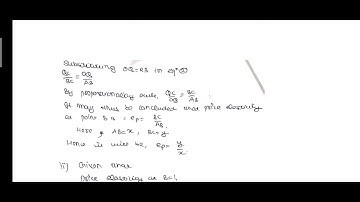 Substituting OQ=RB in eqn ③
QC/BC = OQ/AB
By proportionality rule, QC/OQ = BC/AB
It may thus be concluded that price elasticity
at point B is = ep = BC/AB
Here AB=x, BC=y
Hence it will be, ep = y/x
ii) Given that
Price elasticity at B=1,